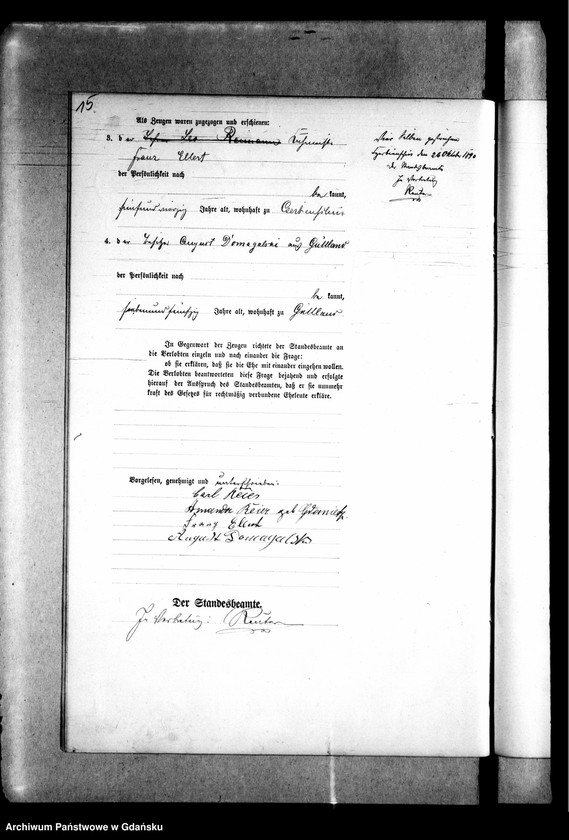 15.
Als Zeugen waren zugezogen und erschienen:
3. der Leo Reimann
Franz Ellert
der Persönlichkeit nach
be kannt,
Jahre alt, wohnhaft zu
4. der Besitzer August Domagalski aus Güttland
der Persönlichkeit nach
be kannt,
siebenundfünfzig Jahre alt, wohnhaft zu Güttland
In Gegenwart der Zeugen richtete der Standesbeamte an
die Verlobten einzeln und nach einander die Frage:
ob sie erklären, daß sie die Ehe mit einander eingehen wollen.
Die Verlobten beantworteten diese Frage bejahend und erfolgte
hierauf der Ausspruch des Standesbeamten, daß er sie nunmehr
kraft des Gesetzes für rechtmäßig verbundene Eheleute erkläre.
Vorgelesen, genehmigt und unterschrieben:
Carl Reier
Amanda Reier geb
Franz Ellert
August Domagalski
Der Standesbeamte.
In Vertretung: Reuter
den 26 Oktober 1890
Der Standesbeamte
In Vertretung
Reuter
Archiwum Państwowe w Gdańsku